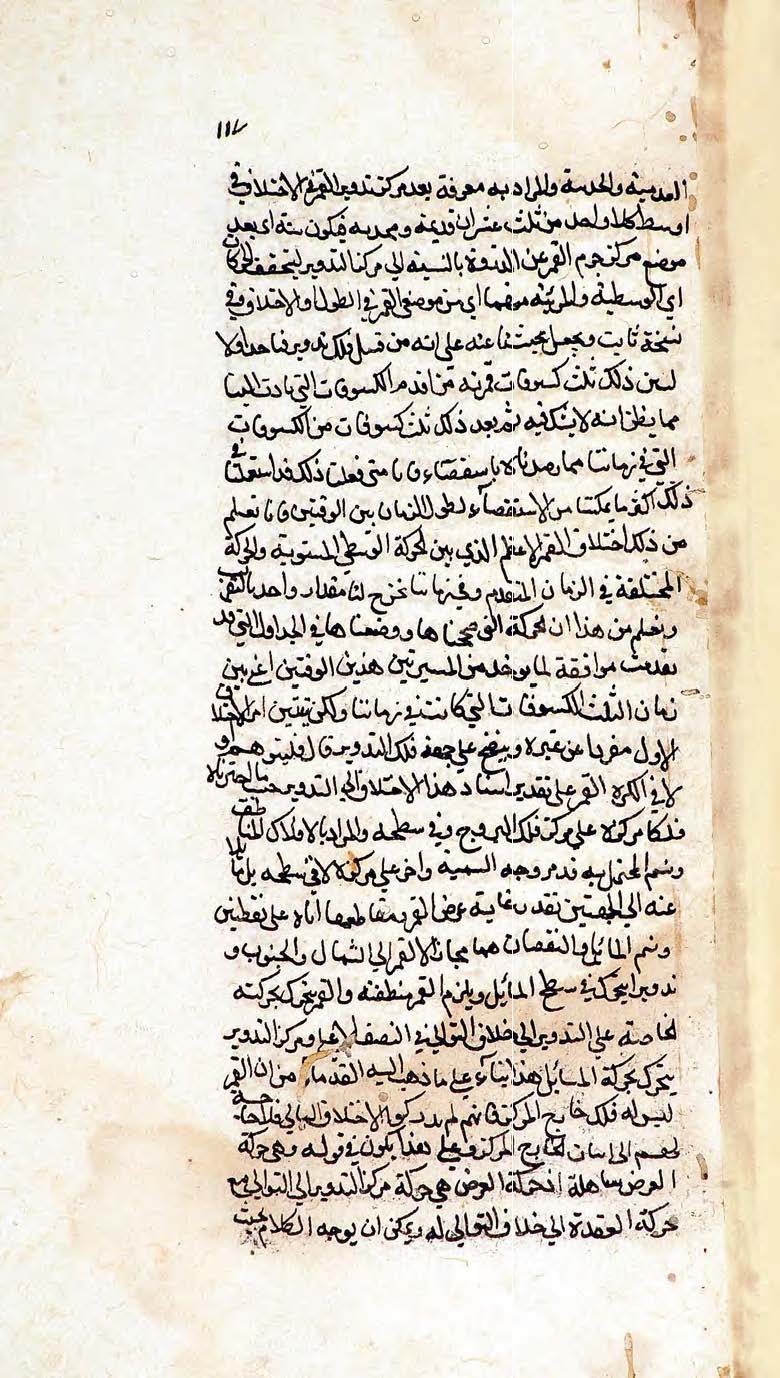 ١١٧
القديمة والحديثة والمراد به معرفة بعد مركز تدوير القمر في الاختلاف في
اوسط كلا واحد من ثلث قديمة ومحدبه فيكون ستة اى بعد
موضع مركز جرم القمر عن الذروة بالنسبة الي مركز التدوير ليتحقق الحركات
اي الوسطية والمرئية منهما اي من موضعي القمر في الطول والاختلاف وفي
نسخة ثابت ويجعل بحثنا عنه علي انه من قبل فلك تدوير فيا حد اولا
لسن ذلك ثلث كسوفات قريبة من اقدم الكسوفات التي تادت الينا
مما يظن انه لا يشك فيه ثم بعد ذلك ثلث كسوفات من الكسوفات
التي في زماننا مما رصدناه باستقصاء فانا متى فعلنا ذلك قد استعملنا في
ذلك اكثر ما يمكننا من الاستقصاء لطول الزمان بين الوقتين فانا نعلم
من ذلك اختلاف القمر الاعظم الذي بين الحركة الوسطي المستوية والحركة
المختلفة في الزمان المتقدم وفي زماننا يخرج لنا مقدار واحد بالتقريب
ونعلم من هذا ان الحركة التي صححناها ووضعناها في الجداول التي قد
تقدمت موافقة لما يوخذ من المسير بين هذين الوقتين اعني بين
زمان الثلث الكسوفات التي كانت في زماننا ولكن تبيين امر الاختلاف
الاول مفردا عن غيره ويتضح علي جهة فلك التدوير قال فليتوهم و
لا في الكرة القمر علي تقدير اسناد هذا الاختلاف الي التدوير حسب ما اخترناه
فلكا مركزه علي مركز فلك البروج وفي سطحه والمراد بالافلاك المناطق
وسم الممثل به قد مر وجه التسمية واخر علي مركزه لا في سطحه بل مائلا
عنه الي الجهتين بقدر غاية عرض القمر مقاطعا اياه علي نقطتين
وسم المائل والنقطتان هما مجازا القمر الي الشمال والجنوب و
تدويرا يتحرك في سطح المائل ويلزم القمر منطقته والقمر يتحرك بحركته
الخاصة علي التدوير الي خلاف التوالي في النصف الاعلي ومركز التدوير
يتحرك بحركة المائل هذا بناء علي ما ذهب اليه القدماء من ان القمر
ليس له فلك خارج المركز فانهم لم يدركوا الاختلاف الثاني فلا حاجة
لهم الي اثبات الخارج المركز وعلي هذا يكون في قوله وهي حركة
العرض ساهلة اذ حركة العرض هي حركة مركز التدوير الي التوالي مع
حركة العقدة الي خلاف التوالي له ويمكن ان يوجه الكلام بحيث